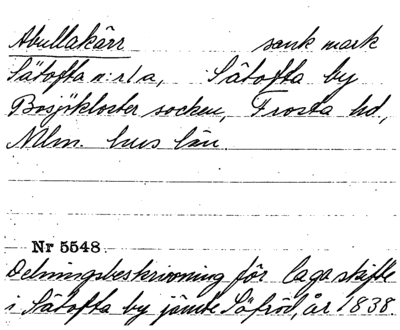 Abullakärr sank mark
Sätofta n:r 1a, Sätofta by
Bosjökloster socken, Frosta hd,
Mlm. hus län.
Nr 5548
Delningsbeskrivning för laga skifte
i Sätofta by jämte Säfröd, år 1838.